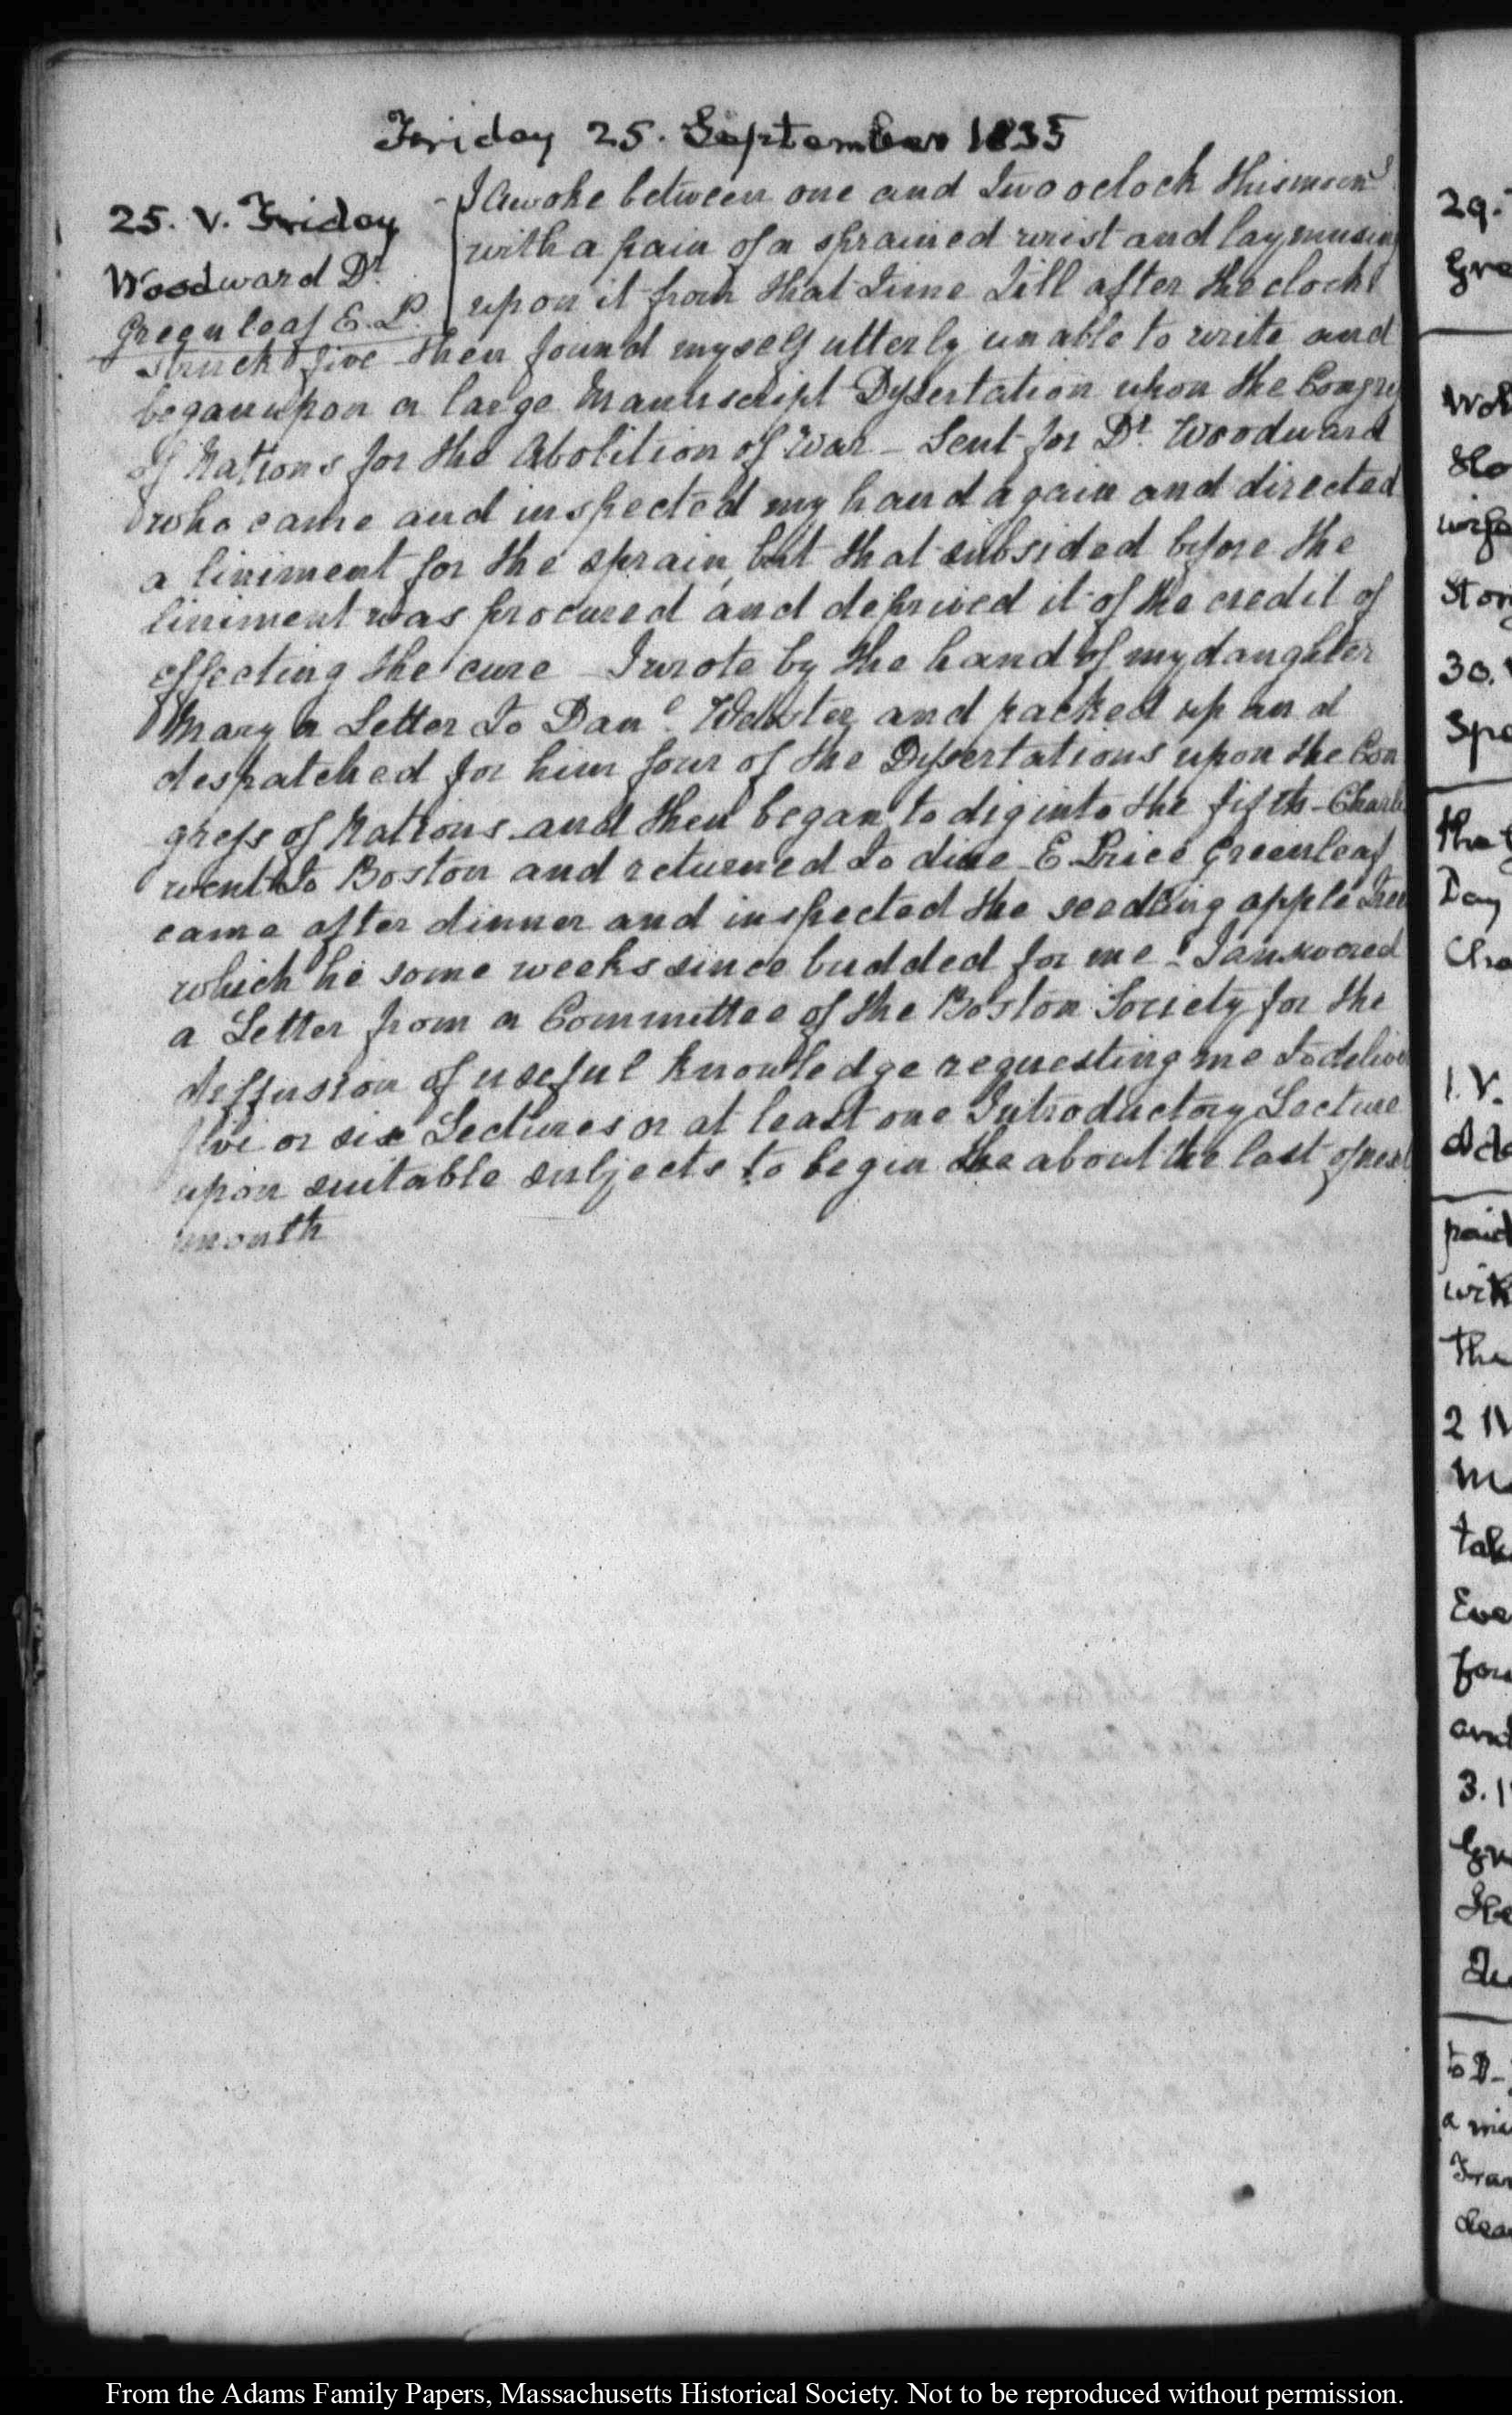 Friday 25. September 1835
25. V. Friday
Woodward Dr.
Greenleaf E. P.
I awoke between one and two oclock this morng
with a pain of a sprained wrist and lay musing
upon it from that time till after the clock
struck five then found myself utterly unable to write and
began upon a large Manuscript Dissertation upon the Congre
of Nations for the Abolition of War – Sent for Dr. Woodward
who came and inspected my hand again and directed
a liniment for the sprain, but that subsided before the
liniment was procured and deprived it of the credit of
effecting the cure – I wrote by the hand of my daughter
Mary a Letter to Danl. Webster and packed up and
despatched for him four of the Dissertations upon the Con
gress of Nations and then began to dig into the fifth – Charles
went to Boston and returned to dine – E Price Greenleaf
came after dinner and inspected the seedling apple trees
which he some weeks since budded for me – I answered
a Letter from a Committee of the Boston Society for the
diffusion of useful knowledge requesting me to deliver
five or six Lectures or at least one Introductory Lecture
upon suitable subjects to begin the about the last of next
month
29.
Gre
30.
Day
1. V.
paid
The
3.
From the Adams Family Papers, Massachusetts Historical Society. Not to be reproduced without permission.